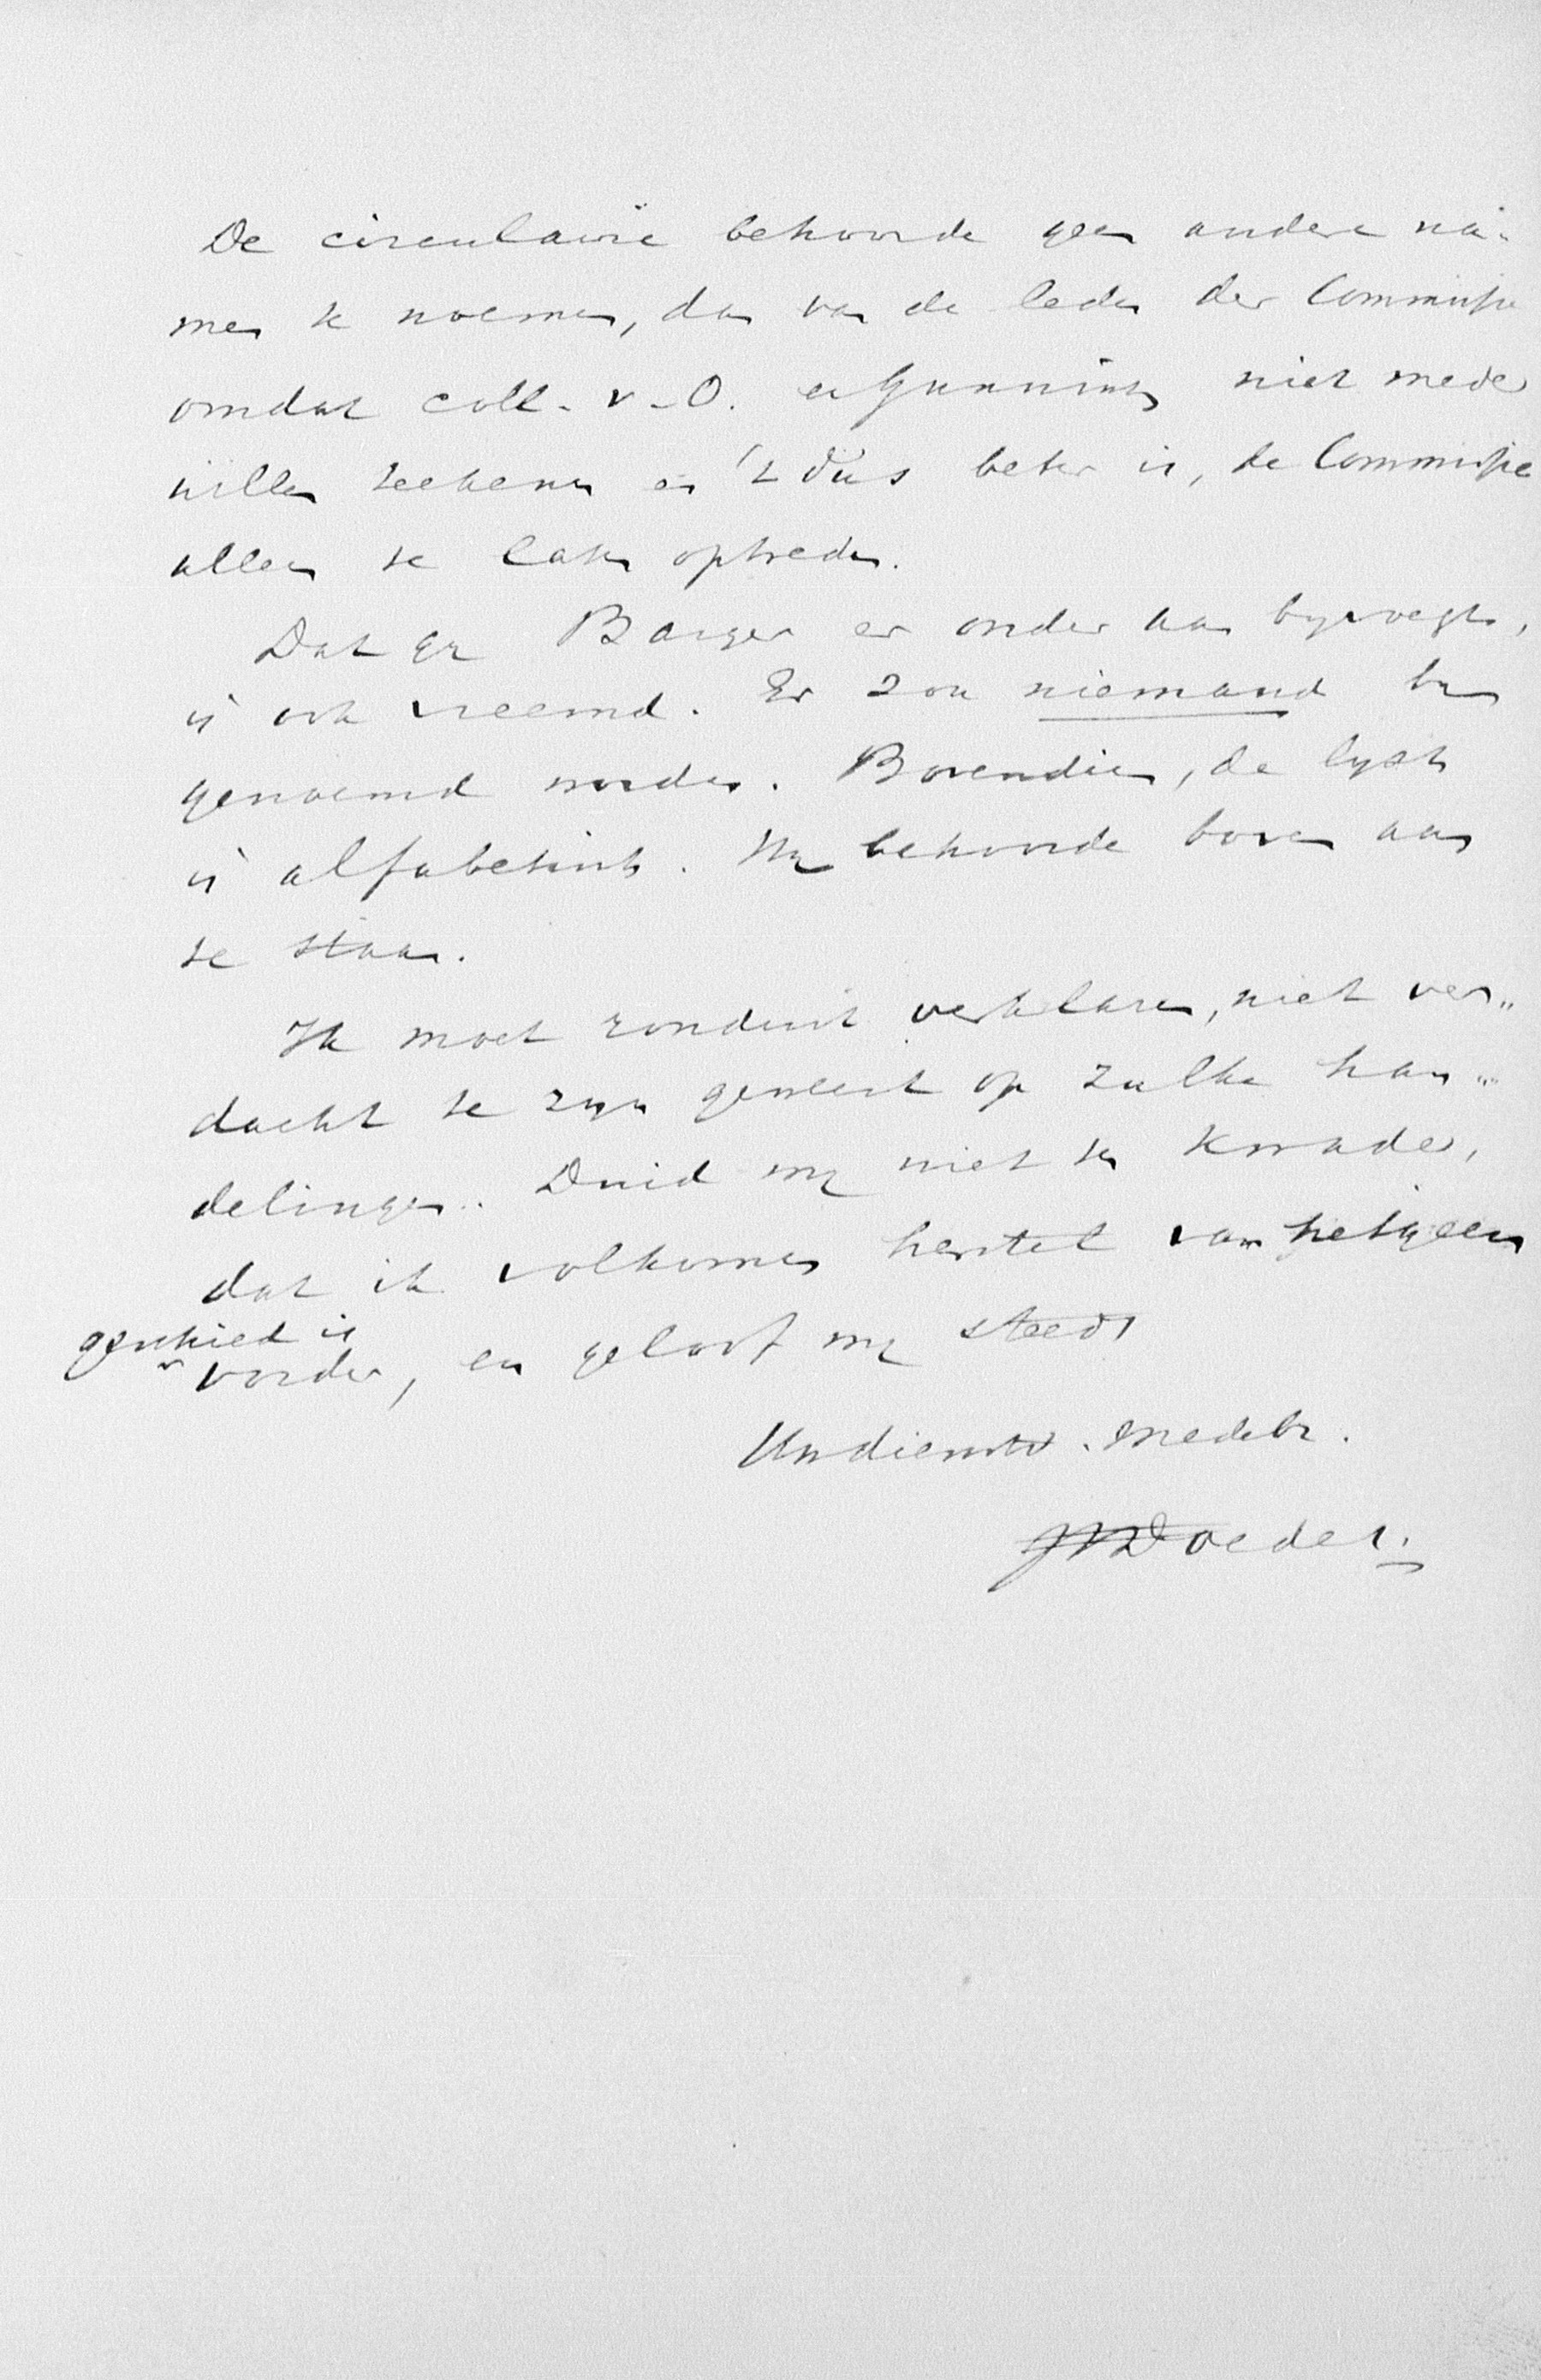 De circulaire behoorde geen andere na-
men te noemen, dan van de leden der Commissie
omdat coll. v. O. en Gunning niet mede
willen teekenen en 't dus beter is, de Commissie
alleen te laten optreden.
Dat gij Barger er onder aan bijvoegt,
is ook vreemd. Er zou niemand bij
genoemd worden. Bovendien, de lijst
is alfabetisch. Hij behoorde boven aan
te staan.
Ik moet ronduit verklaren, niet ver-
dacht te zijn geweest op zulke han-
delingen. Duid mij niet ten kwade,
dat ik volkomen herstel van hetgeen
geschied is
vorder, en geloof mij steeds
Uw dienstw. medebr.
Doedes.